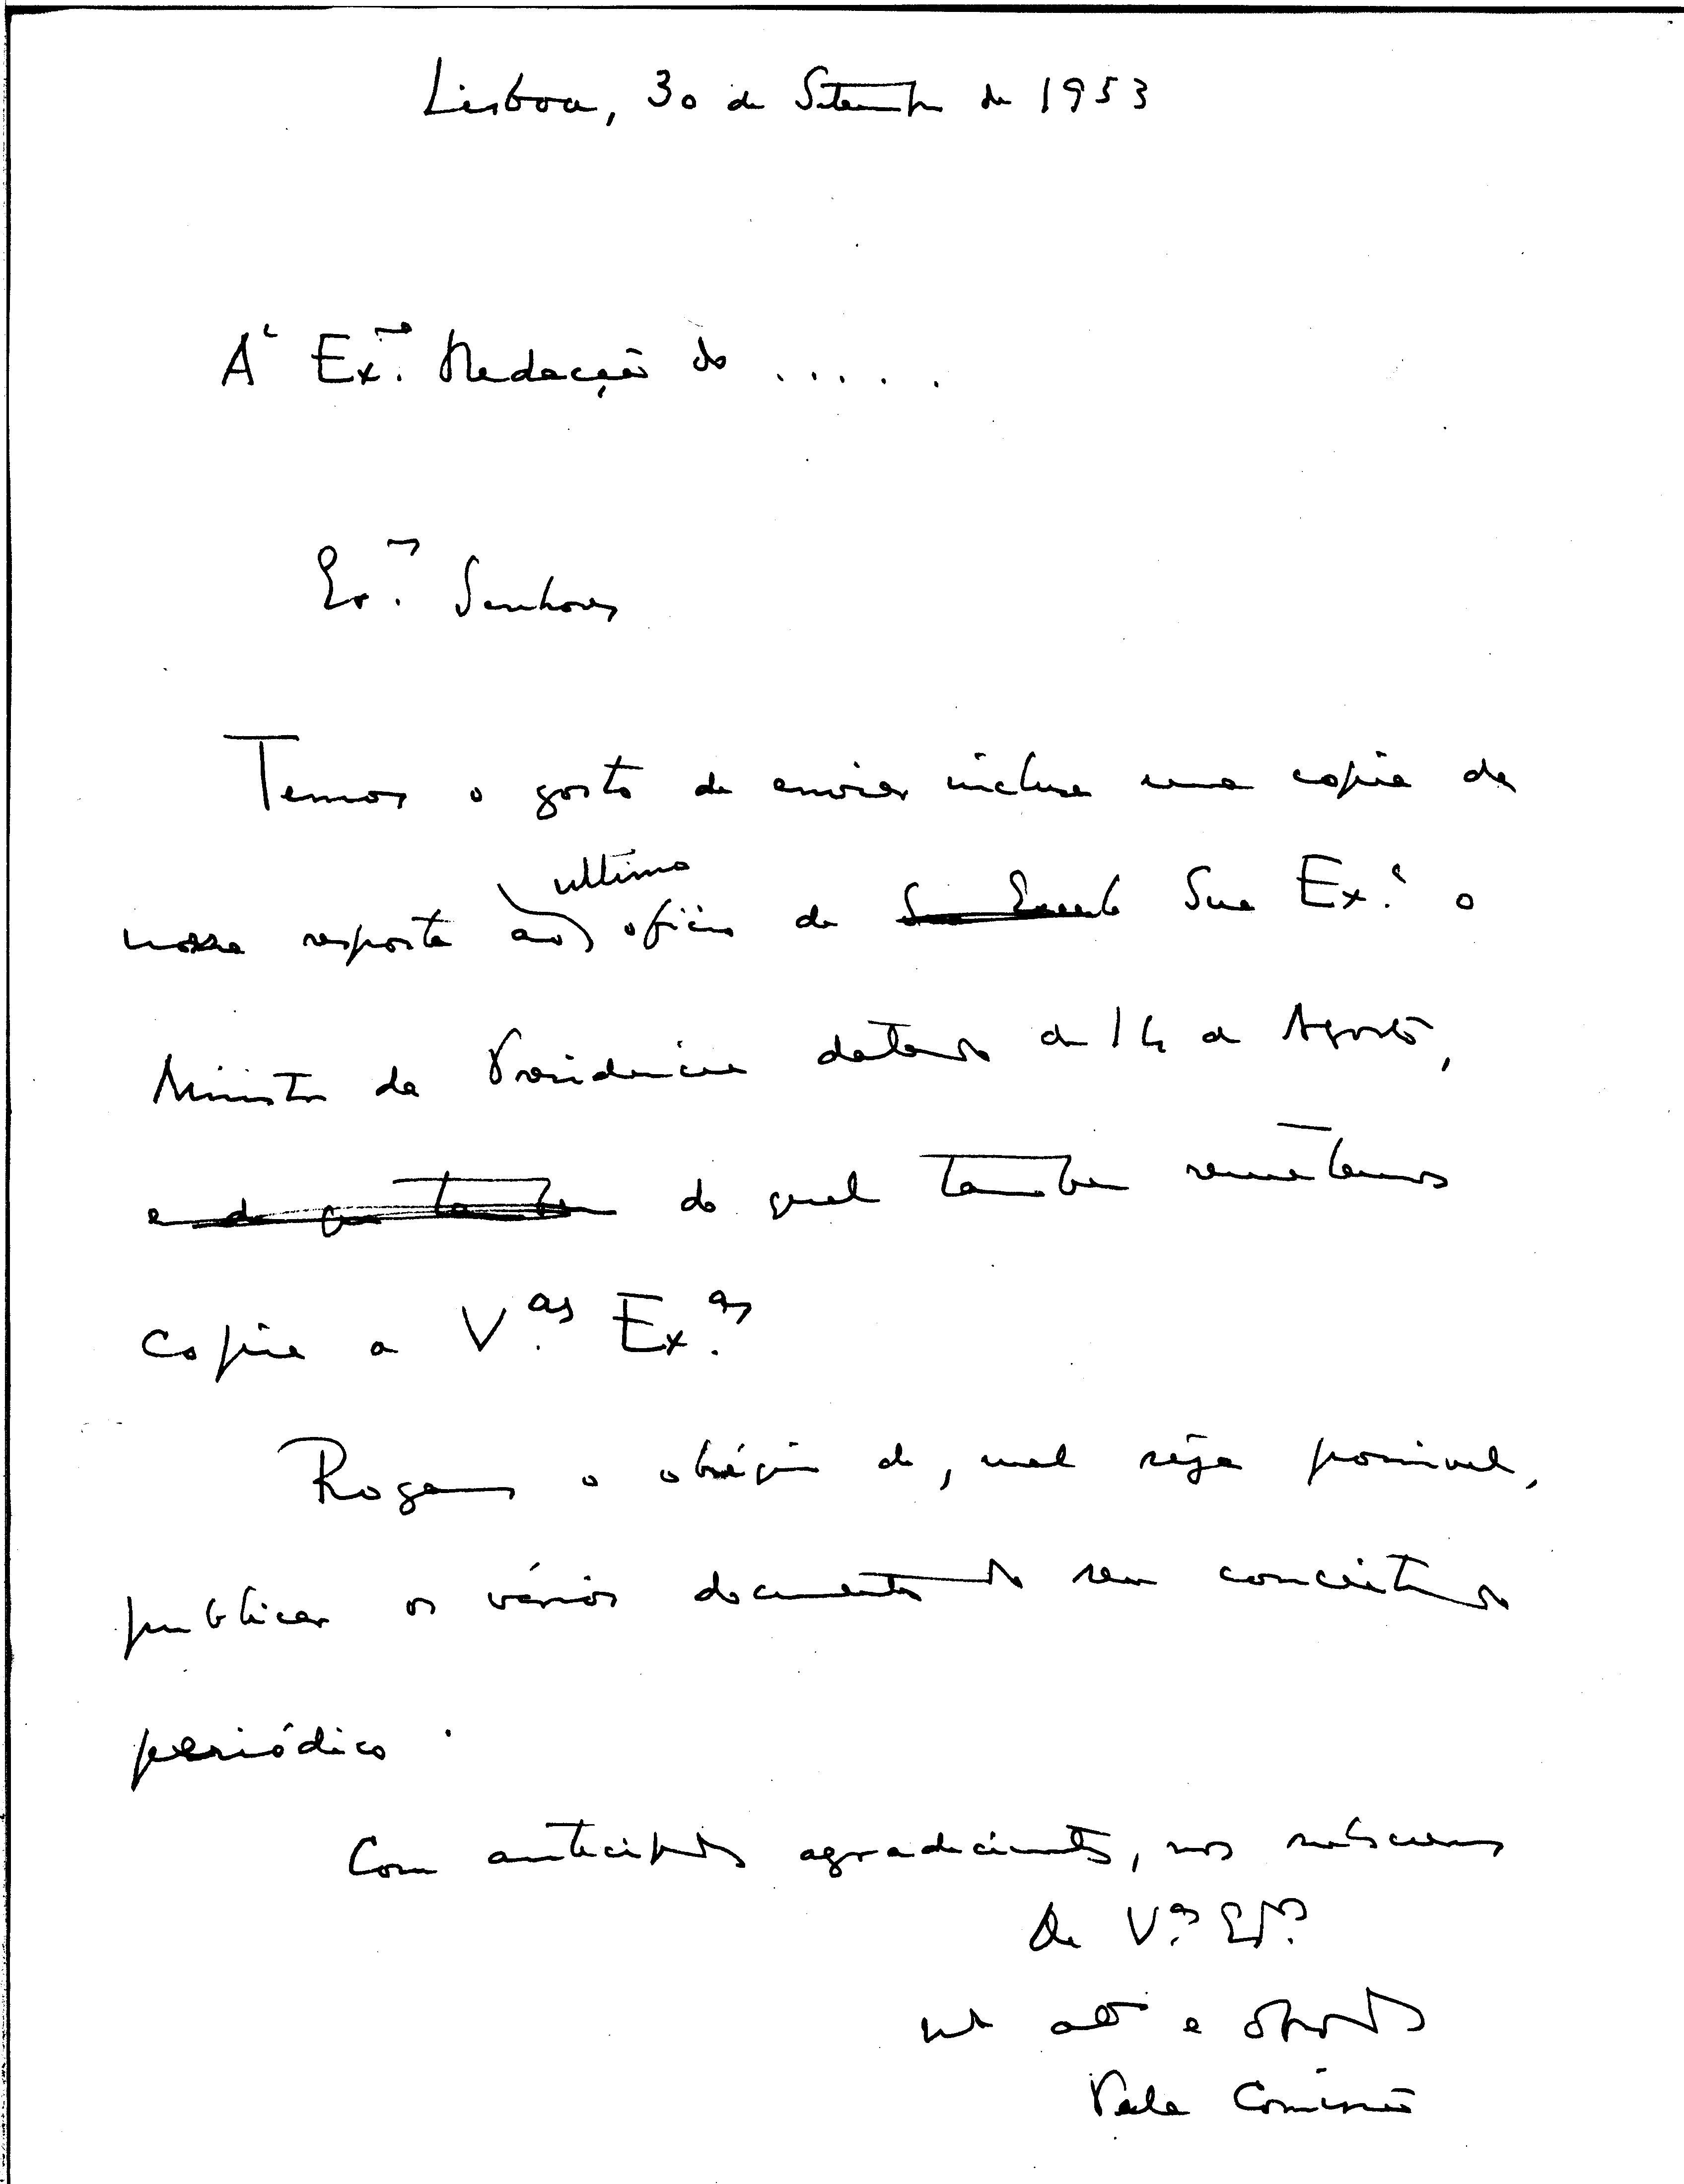 Lisboa, 30 de Setembro de 1953
À Ex.ma Redacção do .....
Ex.mos Senhores
Temos o gosto de enviar inclusa uma copia da
ultimo
nossa resposta ao oficio de Sua Ex.ª o
Ministro da Presidencia datado de 14 de Agosto,
e do que tambem do qual tambem remetemos
copia a V.as Ex.as
Rogamos o obséquio de, mal seja possivel,
publicar os vários documentos no seu conceituado
periódico.
Com antecipados agradecimentos, nos subscrevemos
De V.as Ex.as
e
Pela Comissão